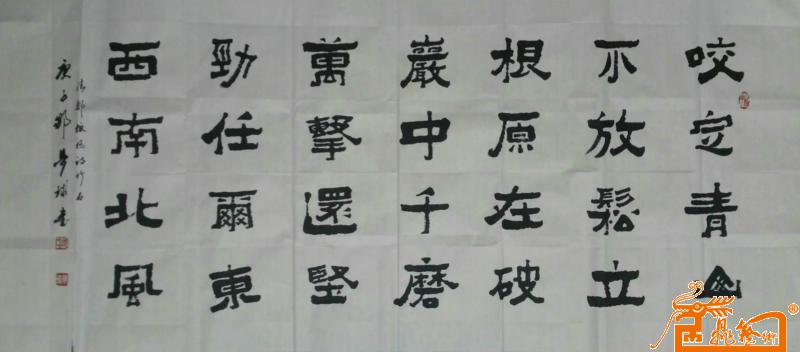 咬定青山
不放鬆立
根原在破
巖中千磨
萬擊還堅
勁任爾東
西南北風
清鄭板橋詩竹石
庚子